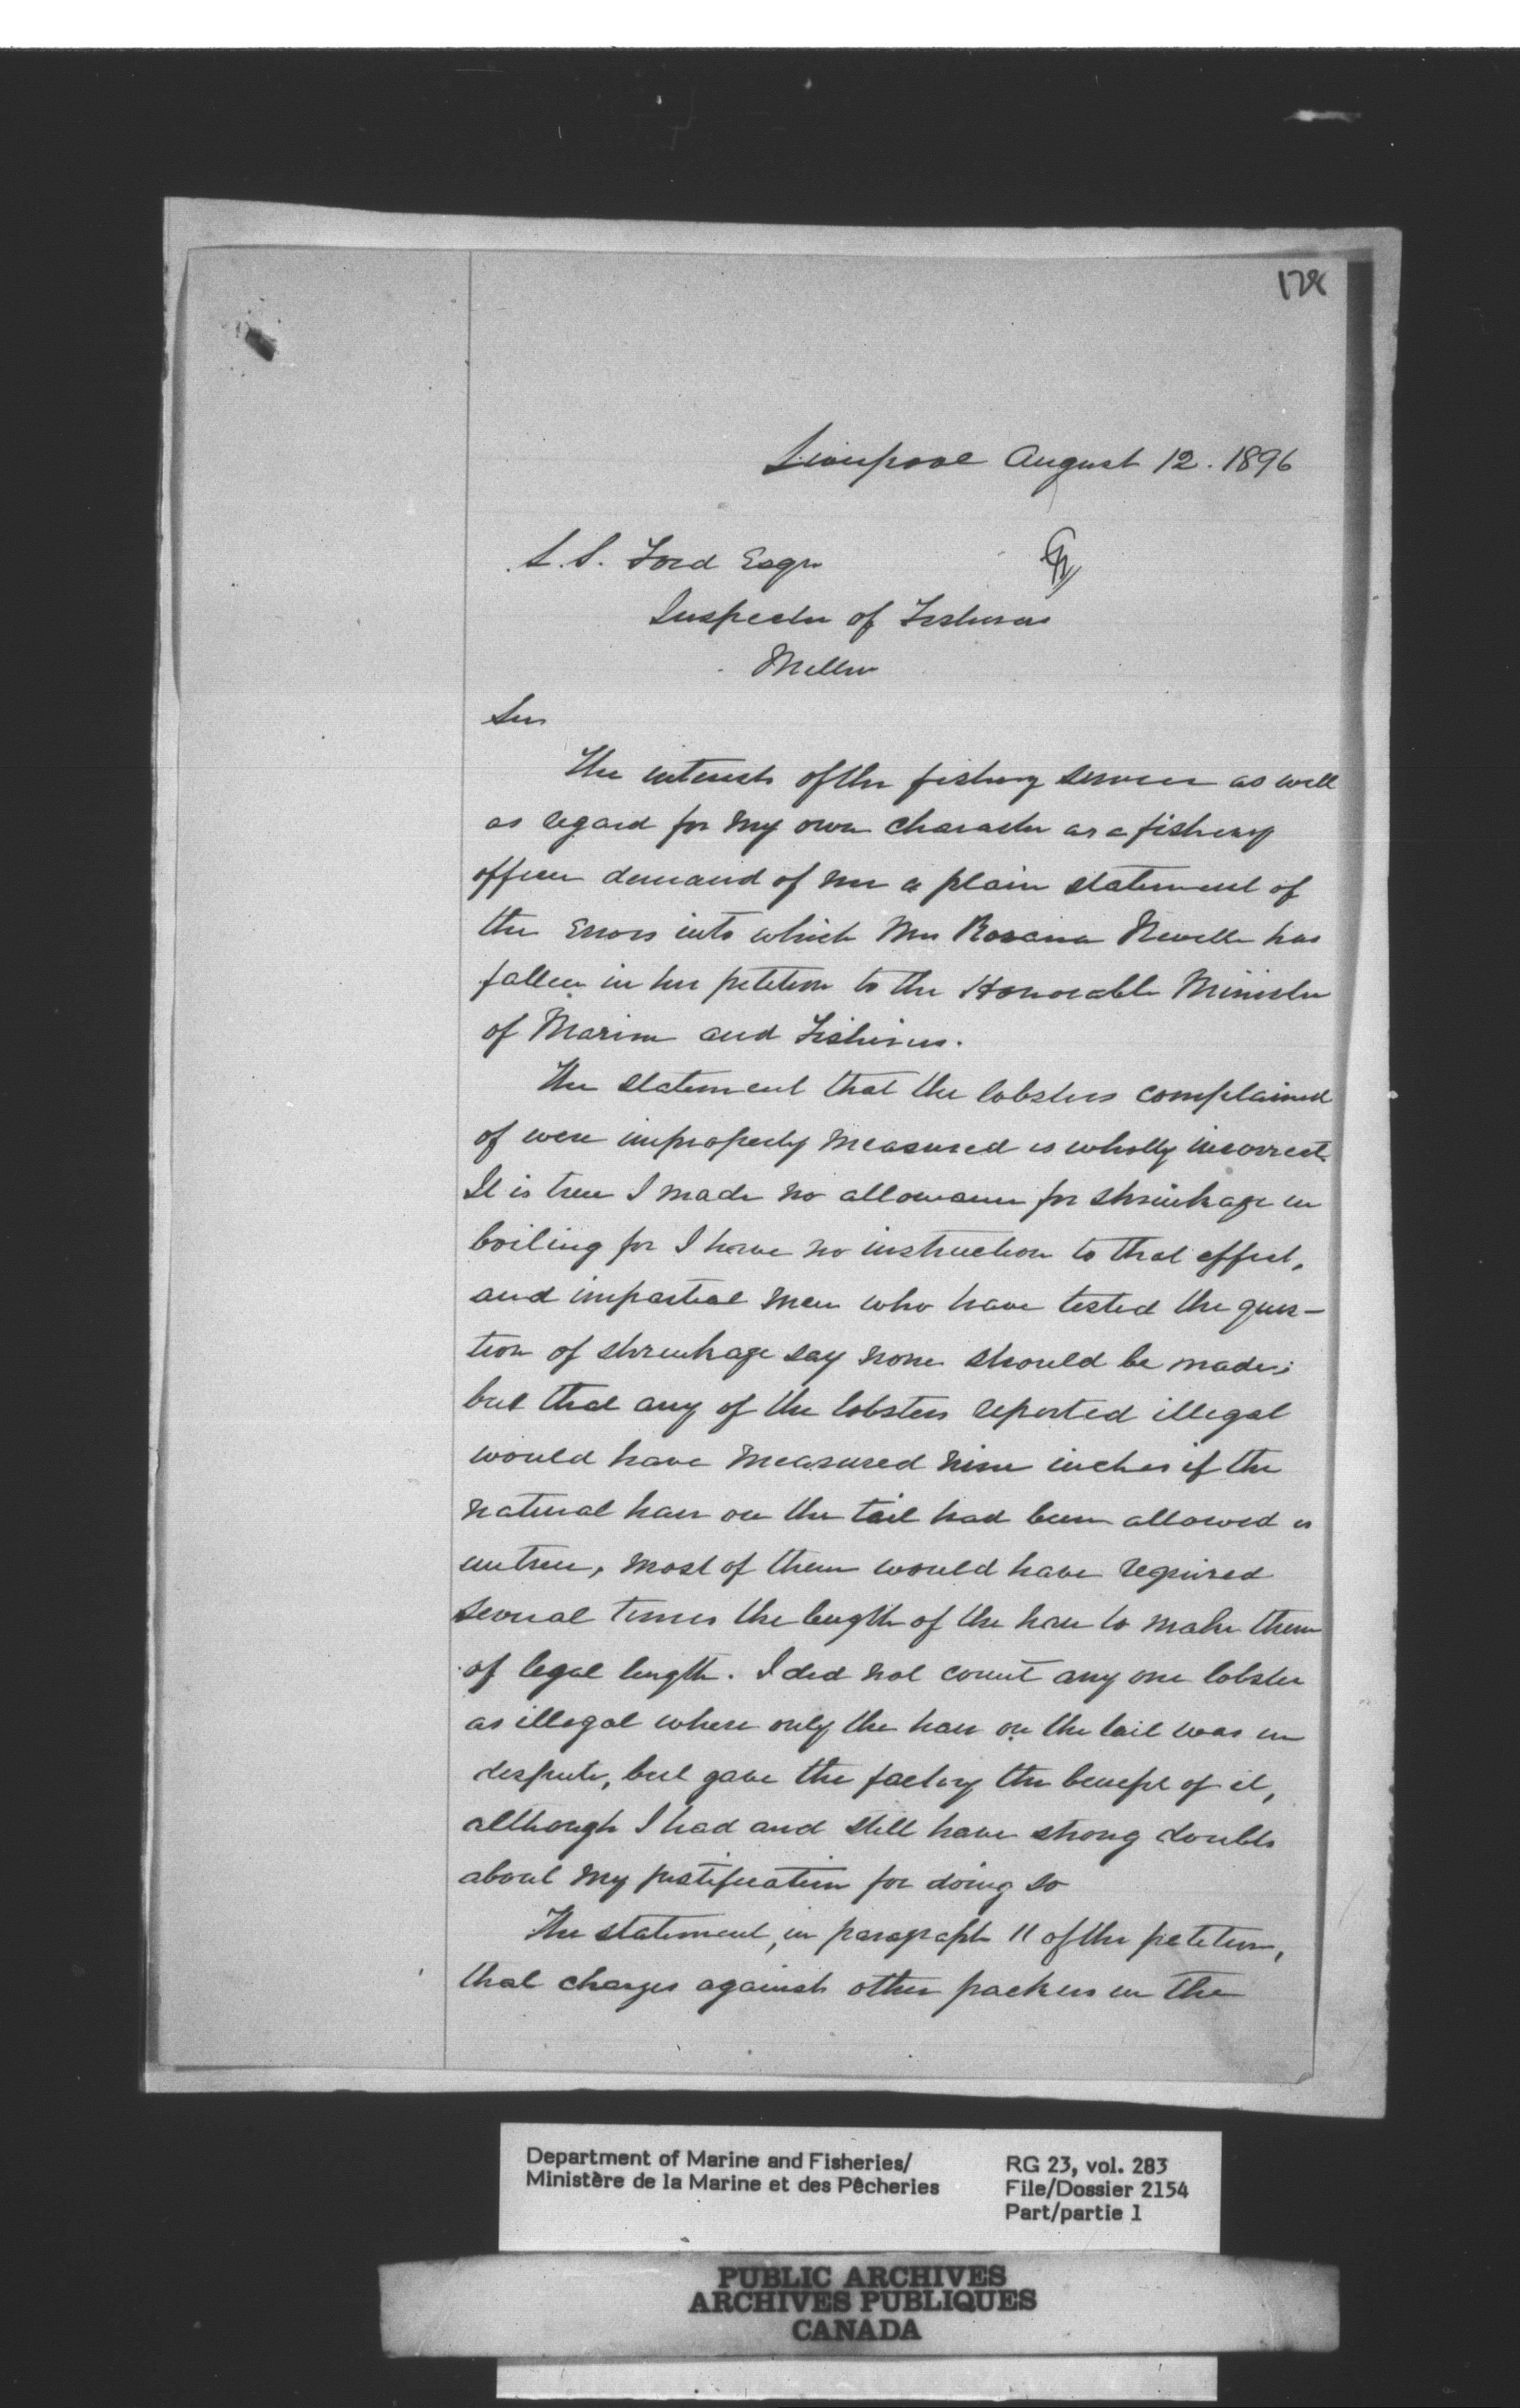 128
Liverpool August 12. 1896
L. S. Ford Esqr
Inspector of Fisheries
Milton
Sir
The interests of the fishery service as well
as regard for my own character as a fishery
officer demand of me a plain statement of
the Errors into which Mrs Rosana Newelle has
fallen in her petition to the Honorable Minister
of Marine and Fisheries.
The statement that the lobsters complained
of were improperly measured is wholly incorrect.
It is true I made no allowance for shrinkage in
boiling for I have no instruction to that effect,
and impartial men who have tested the ques-
tion of shrinkage say none should be made;
but that any of the lobsters reported illegal
would have measured nine inches if the
natural hair on the tail had been allowed is
untrue, most of them would have required
several times the length of the hair to make them
of legal length. I did not count any one lobster
as illegal where only the hair on the tail was in
dispute, but gave the factory the benefit of it,
although I had and still have strong doubts
about my justification for doing so
The statement, in paragraph 11 of the petition,
that charges against other packers in the
Department of Marine and Fisheries/
Ministère de la Marine et des Pêcheries
RG 23, vol. 283
File/Dossier 2154
Part/partie 1
PUBLIC ARCHIVES
ARCHIVES PUBLIQUES
CANADA